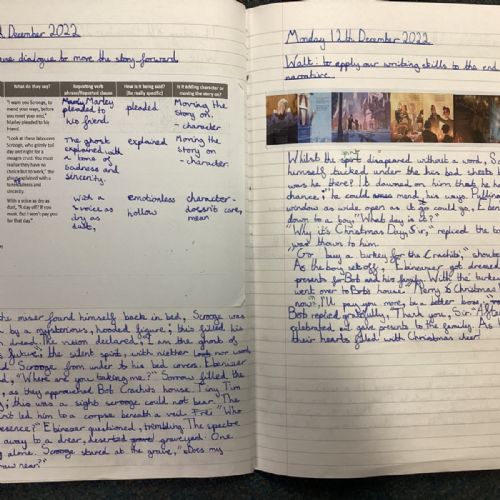 December 2022
use dialogue to move the story forward
What do they say?
Reporting verb phrase/Reported clause
How is it being said? (Be really specific)
Is it adding character or moving the story on?
"I warn you Scrooge, to mend your ways, before you meet your end," Marley pleaded to his friend.
Marley Marley pleaded to his friend
pleaded
Moving the story on.
- character
"Look at these labourers Scrooge, who gently toil day and night for a meagre crust. You must realise they have no choice but to work," the ghost explained with a tone of sadness and sincerity.
The ghost explained with a tone of sadness and sincerity.
explained
Moving the story on
- character.
With a voice as dry as dust, "A day off! If you must. But I won't pay you for that day."
with a voice as dry as dust,
emotionless
hollow
character - doesn't care, mean
the miser found himself back in bed, Scrooge was
by a mysterious, hooded figure; this filled his
dread. The vision declared, "I am the ghost of
future, the silent spirit, with neither look nor word,
Scrooge from under to his bed covers. Ebenizer
"Where are you taking me?" Sorrow filled the
as they approached Bob Crachits house. Tiny Tim
this was a sight scrooge could not bear. The
led him to a corpse beneath a veil. "Who
presence?" Ebinezar questioned, trembling. The spectre
away to a drear, deserted graveyard. One
alone. Scrooge stared at the grave, "Does my
near?"
Monday 12th December 2022
Walt: to apply our writing skills to the end
narrative.
Whilst the spirit disapeared without a word, S
himself tucked under the his bed sheets b
was he there? It dawned on him that he h
chance; he could mend his ways. Pulling
window as wide open as it go could go, Eben
down to a boy, "What day is it?"
"Why it's Christmas Day, Sir," replied the bo
was thrown to him.
"Go, buy a turkey for the Crachits," shoute
As the boy set off, Ebinezer got dressed
presents for Bob and his family. With the turkey
went over to Bob's house. "Merry Christmas
now, I'll pay you more, be a better boss,"
Bob replied gratefully, "Thank you, Sir." After
celebrated and gave presents to the family. As
their hearts filled with Christmas cheer.